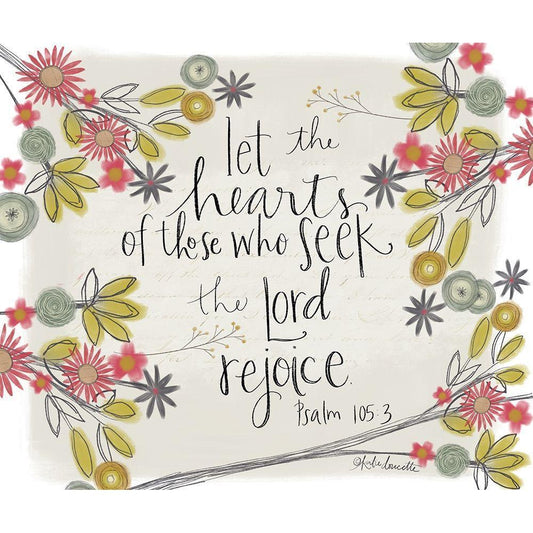 let the
hearts
of those who seek
the Lord
rejoice.
Psalm 105:3